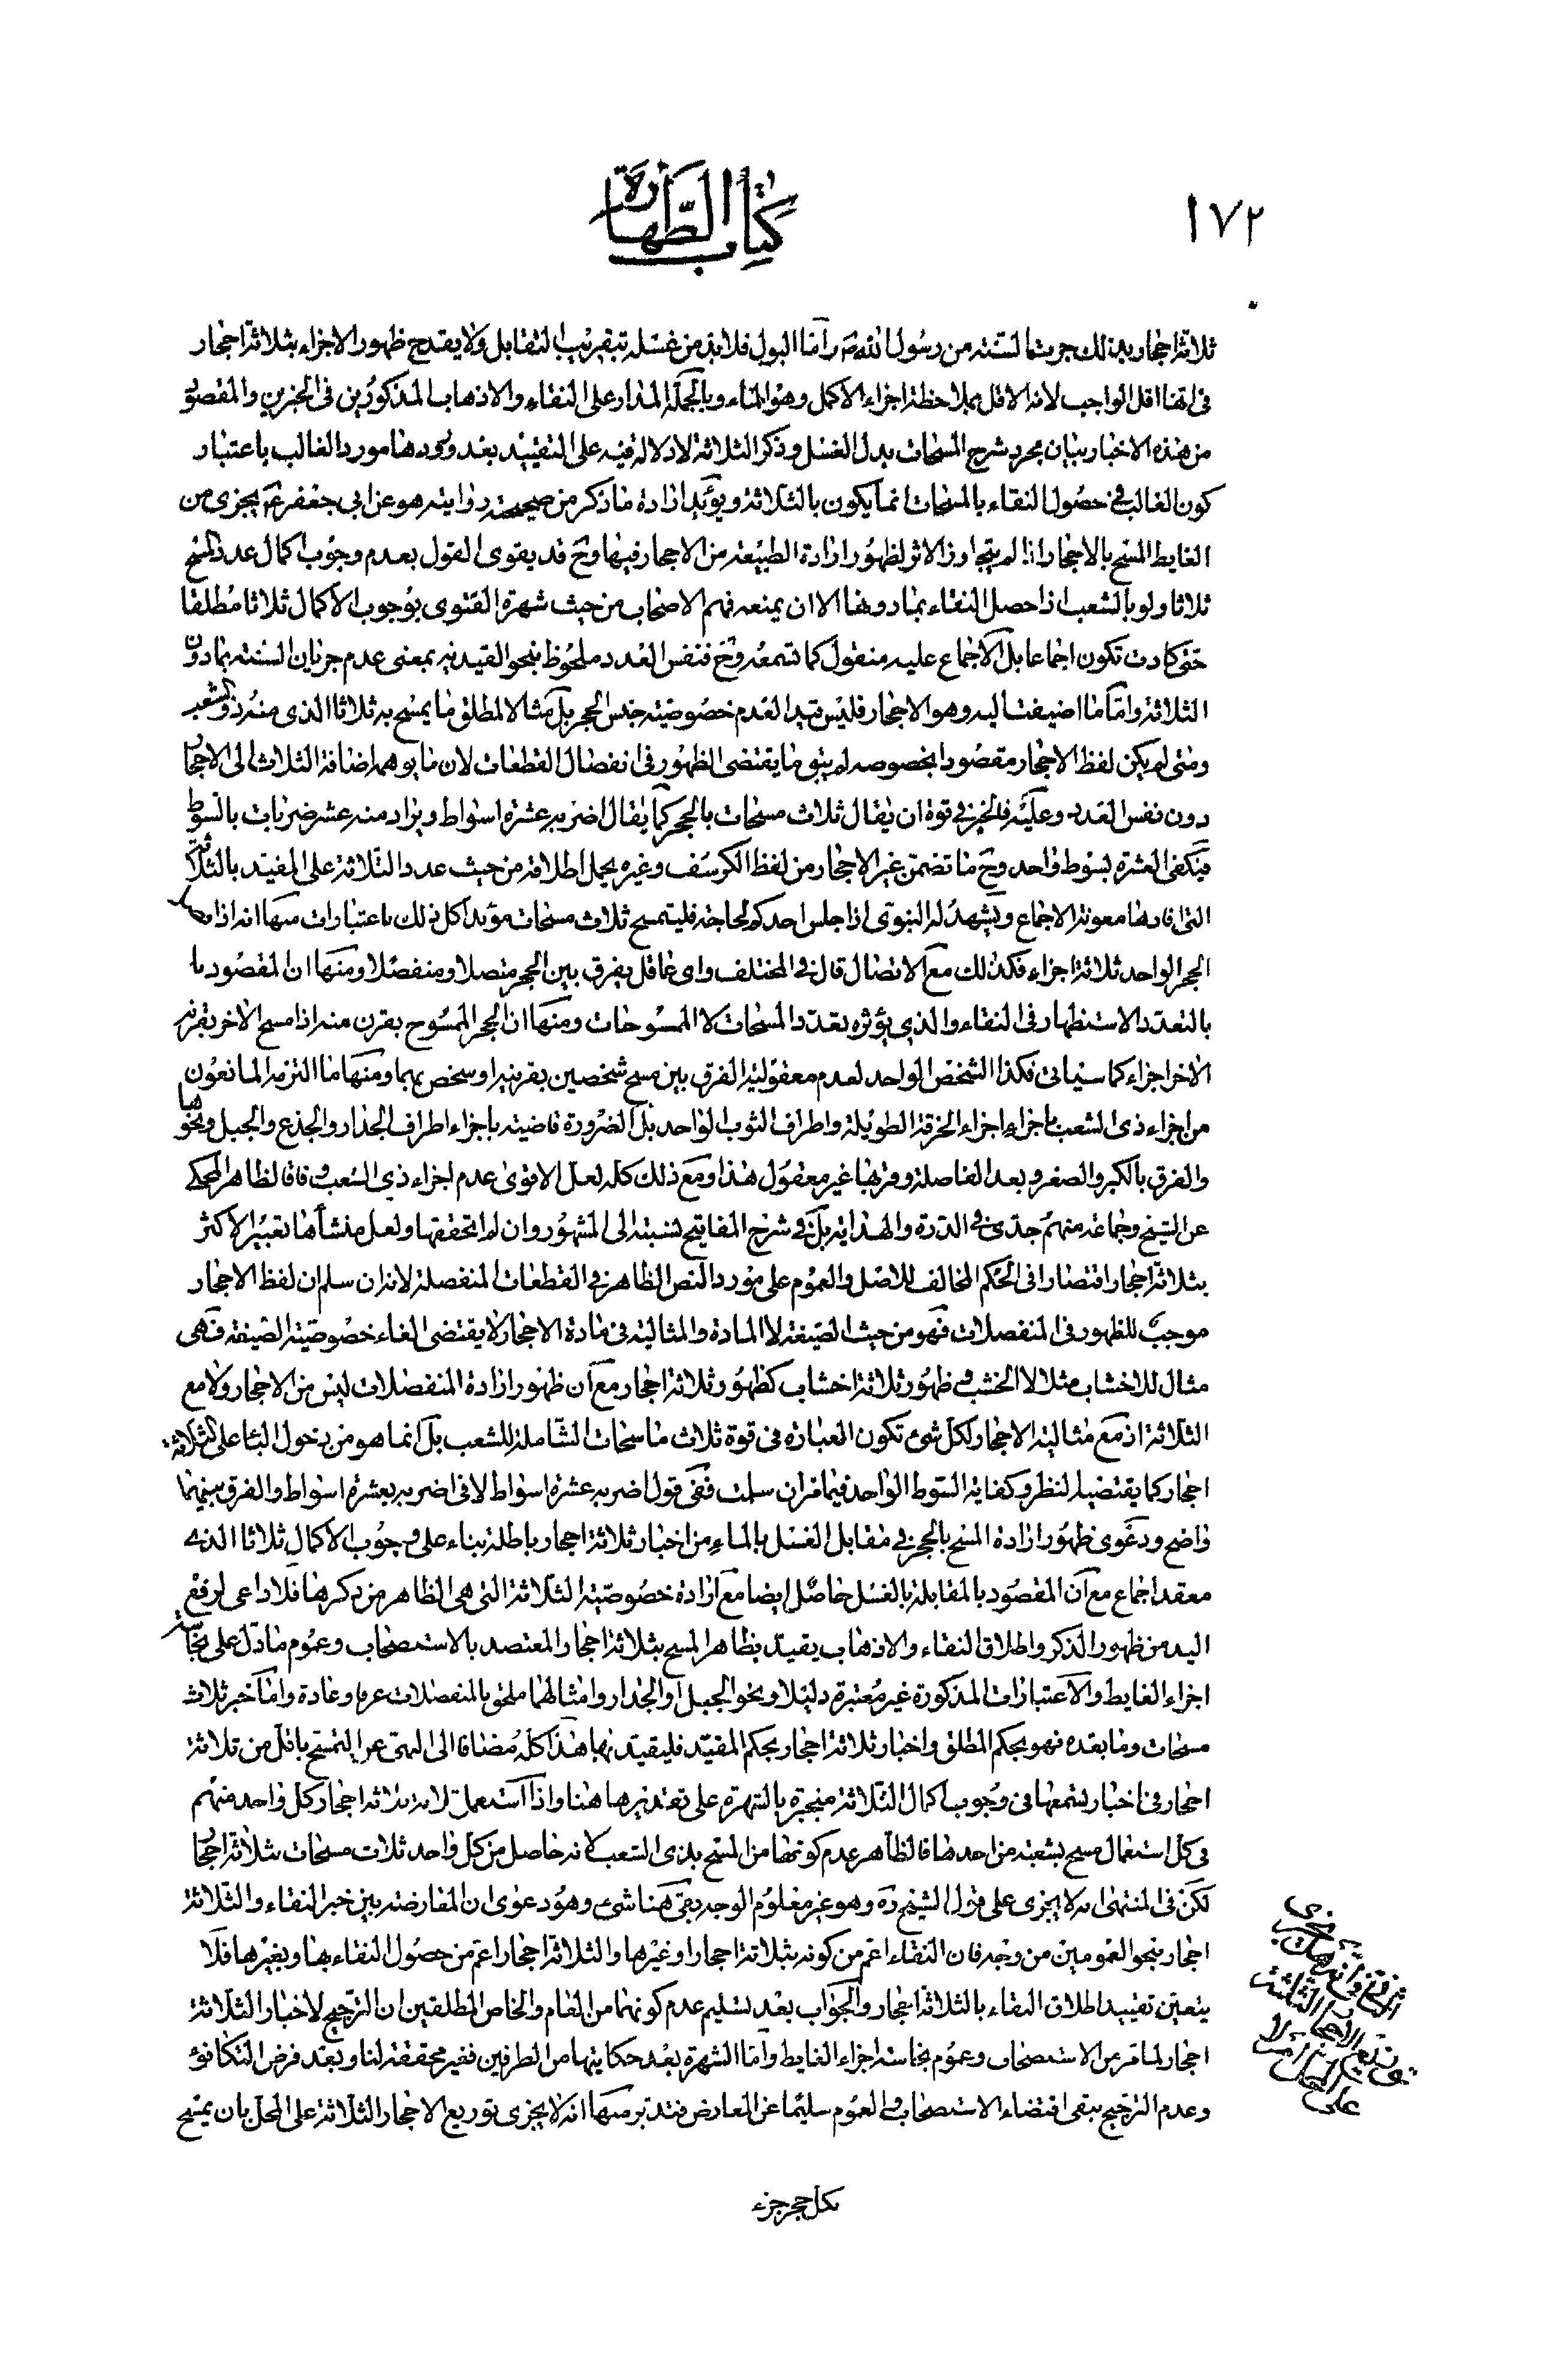 ١٧٢
كتاب الطهارة
ثلاثة احجار بذلك جرت السنة من رسول الله ص واما البول فلابد من غسله بتقريب التقابل ولا يقدح ظهور الاجزاء بثلاثة احجار
فى انها اقل الواجب لانه الاقل بملاحظة اجزاء الاكمل وهو الماء وبالجملة المدار على النقاء والاذهاب المذكورين فى الخبرين والمقصود
من هذه الاخبار بيان مجرد شرح المسحات بدل الغسل وذكر الثلاثة لا دلالة فيه على التقييد بعد ورودها مورد الغالب باعتبار
كون الغالب فى حصول النقاء بالمسحات انما يكون بالثلاثة ويؤيد ارادة ما ذكر من صحيحة روايته هو عن ابى جعفر ع يجزى من
الغايط المسح بالاحجار اذا لم يتجاوز الاثر لظهور ارادة الطبيعة من الاحجار فيها وح قد يقوى القول بعدم وجوب اكمال عدد المسح
ثلاثا ولو بالشعب اذا حصل النقاء بما دونها الا ان يمنعه فهم الاصحاب من حيث شهرة الفتوى بوجوب الاكمال ثلاثا مطلقا
حتى كادت تكون اجماعا بل الاجماع عليه منقول كما تسمعه وح فنفس العدد ملحوظ بنحو القيدية بمعنى عدم جريان السنة بما دون
الثلاثة واما ما اضيفت اليه وهو الاحجار فليس قيدا لعدم خصوصية جنس الحجر بل مثالا لمطلق ما يمسح به ثلاثا الذى منه ذو الشعب
ومتى لم يكن لفظ الاحجار مقصودا بخصوصه لم يبق ما يقتضى الظهور فى انفصال القطعات لان ما يوهم اضافة الثلاث الى الاحجار
دون نفس العدد وعليه فالخبر فى قوة ان يقال ثلاث مسحات بالحجر كما يقال اضربه عشرة اسواط ويراد منه عشر ضربات بالسوط
فيكفى العشرة بسوط واحد وح ما تضمن غير الاحجار من لفظ الكرسف وغيره يحمل اطلاقه من حيث عدد الثلاثة على المقيد بالثلاثة
التى افادها معونة الاجماع ويشهد له النبوى اذا جلس احدكم لحاجته فليمسح ثلاث مسحات مؤيدا كل ذلك باعتبارات منها انه اذا
الحجر الواحد ثلاثة اجزاء فكذلك مع الاتصال قال فى المختلف واى عاقل يفرق بين الحجر متصلا ومنفصلا ومنها ان المقصود
بالتعدد الاستظهار فى النقاء والذى يؤثره بعدد المسحات لا الممسوحات ومنها ان الحجر الممسوح بقرن منه اذا مسح الاخر بقرنه
الاخر اجزاء كما سيأتى فكذا الشخص الواحد لعدم معقولية الفرق بين مسح شخصين بقرنيه او شخص بهما ومنها ما التزمه المانعون
من اجزاء ذى الشعب باجزاء اجزاء الخرقة الطويلة واطراف الثوب الواحد بل الضرورة قاضية باجزاء اطراف الجدار والجذع والجبل ونحوها
والفرق بالكبر والصغر وبعد الفاصلة وقربها غير معقول هذا ومع ذلك كله لعل الاقوى عدم اجزاء ذى الشعب وفاقا لظاهر المحكى
عن الشيخ وجماعة منهم جدى فى الدرة والهداية بل فى شرح المفاتيح نسبته الى المشهور وان لم اتحققها ولعل منشأها تعبير الاكثر
بثلاثة احجار اقتصارا فى الحكم المخالف للاصل والعموم على مورد النص الظاهر فى القطعات المنفصلة لانه ان سلم ان لفظ الاحجار
موجب للظهور فى المنفصلات فهو من حيث الصيغة لا المادة والمثالية فى مادة الاحجار لا يقتضى الغاء خصوصية الصيغة فهى
مثال للاخشاب مثلا لا الخشب فظهور ثلاثة اخشاب كظهور ثلاثة احجار مع ان ظهور ارادة المنفصلات ليس من الاحجار ولا مع
الثلاثة اذ مع مثالية الاحجار لكل شئ تكون العبارة فى قوة ثلاث ماسحات الشاملة للشعب بل انما هو من دخول الباء على الثلاثة
احجار كما يقتضيه النظر وكفاية السوط الواحد فيما مر ان سلمت ففى قول اضربه عشرة اسواط لا فى اضربه بعشرة اسواط والفرق بينهما
واضح ودعوى ظهور ارادة المسح بالحجر فى مقابل الغسل بالماء من اخبار ثلاثة احجار باطلة بناء على وجوب الاكمال ثلاثا الذى
معقد اجماع مع ان المقصود بالمقابلة بالغسل حاصل ايضا مع ارادة خصوصية الثلاثة التى هى الظاهر من ذكرها فلا داعى لرفع
اليد من ظهور الذكر واطلاق النقاء والاذهاب يقيد بظاهر المسح بثلاثة احجار المعتضد بالاستصحاب وعموم ما دل على نجاسة
اجزاء الغايط والاعتبارات المذكورة غير معتبرة دليلا ونحو الجبل او الجدار وامثالهما ملحق بالمنفصلات عرفا وعادة واما خبر ثلاث
مسحات وما بعده فهو بحكم المطلق واخبار ثلاثة احجار بحكم المقيد فليقيد بها هذا كله مضافا الى النهى عن التمسح باقل من ثلاثة
احجار فى اخبار نسمعها فى وجوب اكمال الثلاثة منجبرة بالشهرة على تقديرها هنا واذا استعمل ثلاثة ثلاثة احجار كل واحد منهم
فى كل استعمال مسح بشعبة من احدها فالظاهر عدم كونها من المسح بذى الشعب لانه حاصل من كل واحد ثلاث مسحات بثلاثة احجار
لكن فى المنتهى انه لا يجزى على قول الشيخ ره وهو غير معلوم الوجه بقى هنا شئ وهو دعوى ان المعارضة بين خبر النقاء والثلاثة
احجار بنحو العمومين من وجه فان النقاء اعم من كونه بثلاثة احجار او غيرها والثلاثة احجار اعم من حصول النقاء بها وبغيرها فلا
يتعين تقييد اطلاق النقاء بالثلاثة احجار والجواب بعد تسليم عدم كونهما من العام والخاص المطلقين ان الترجيح لاخبار الثلاثة
احجار لما مر من الاستصحاب وعموم نجاسة اجزاء الغايط واما الشهرة بعد حكايتها من الطرفين فغير محققة لنا وبعد فرض التكافؤ
وعدم الترجيح يبقى اقتضاء الاستصحاب والعموم سليما عن المعارض فتدبر منها انه لا يجزى توزيع الاحجار الثلاثة على المحل بان يمسح
بكل حجر جزء
على المحل ام لا